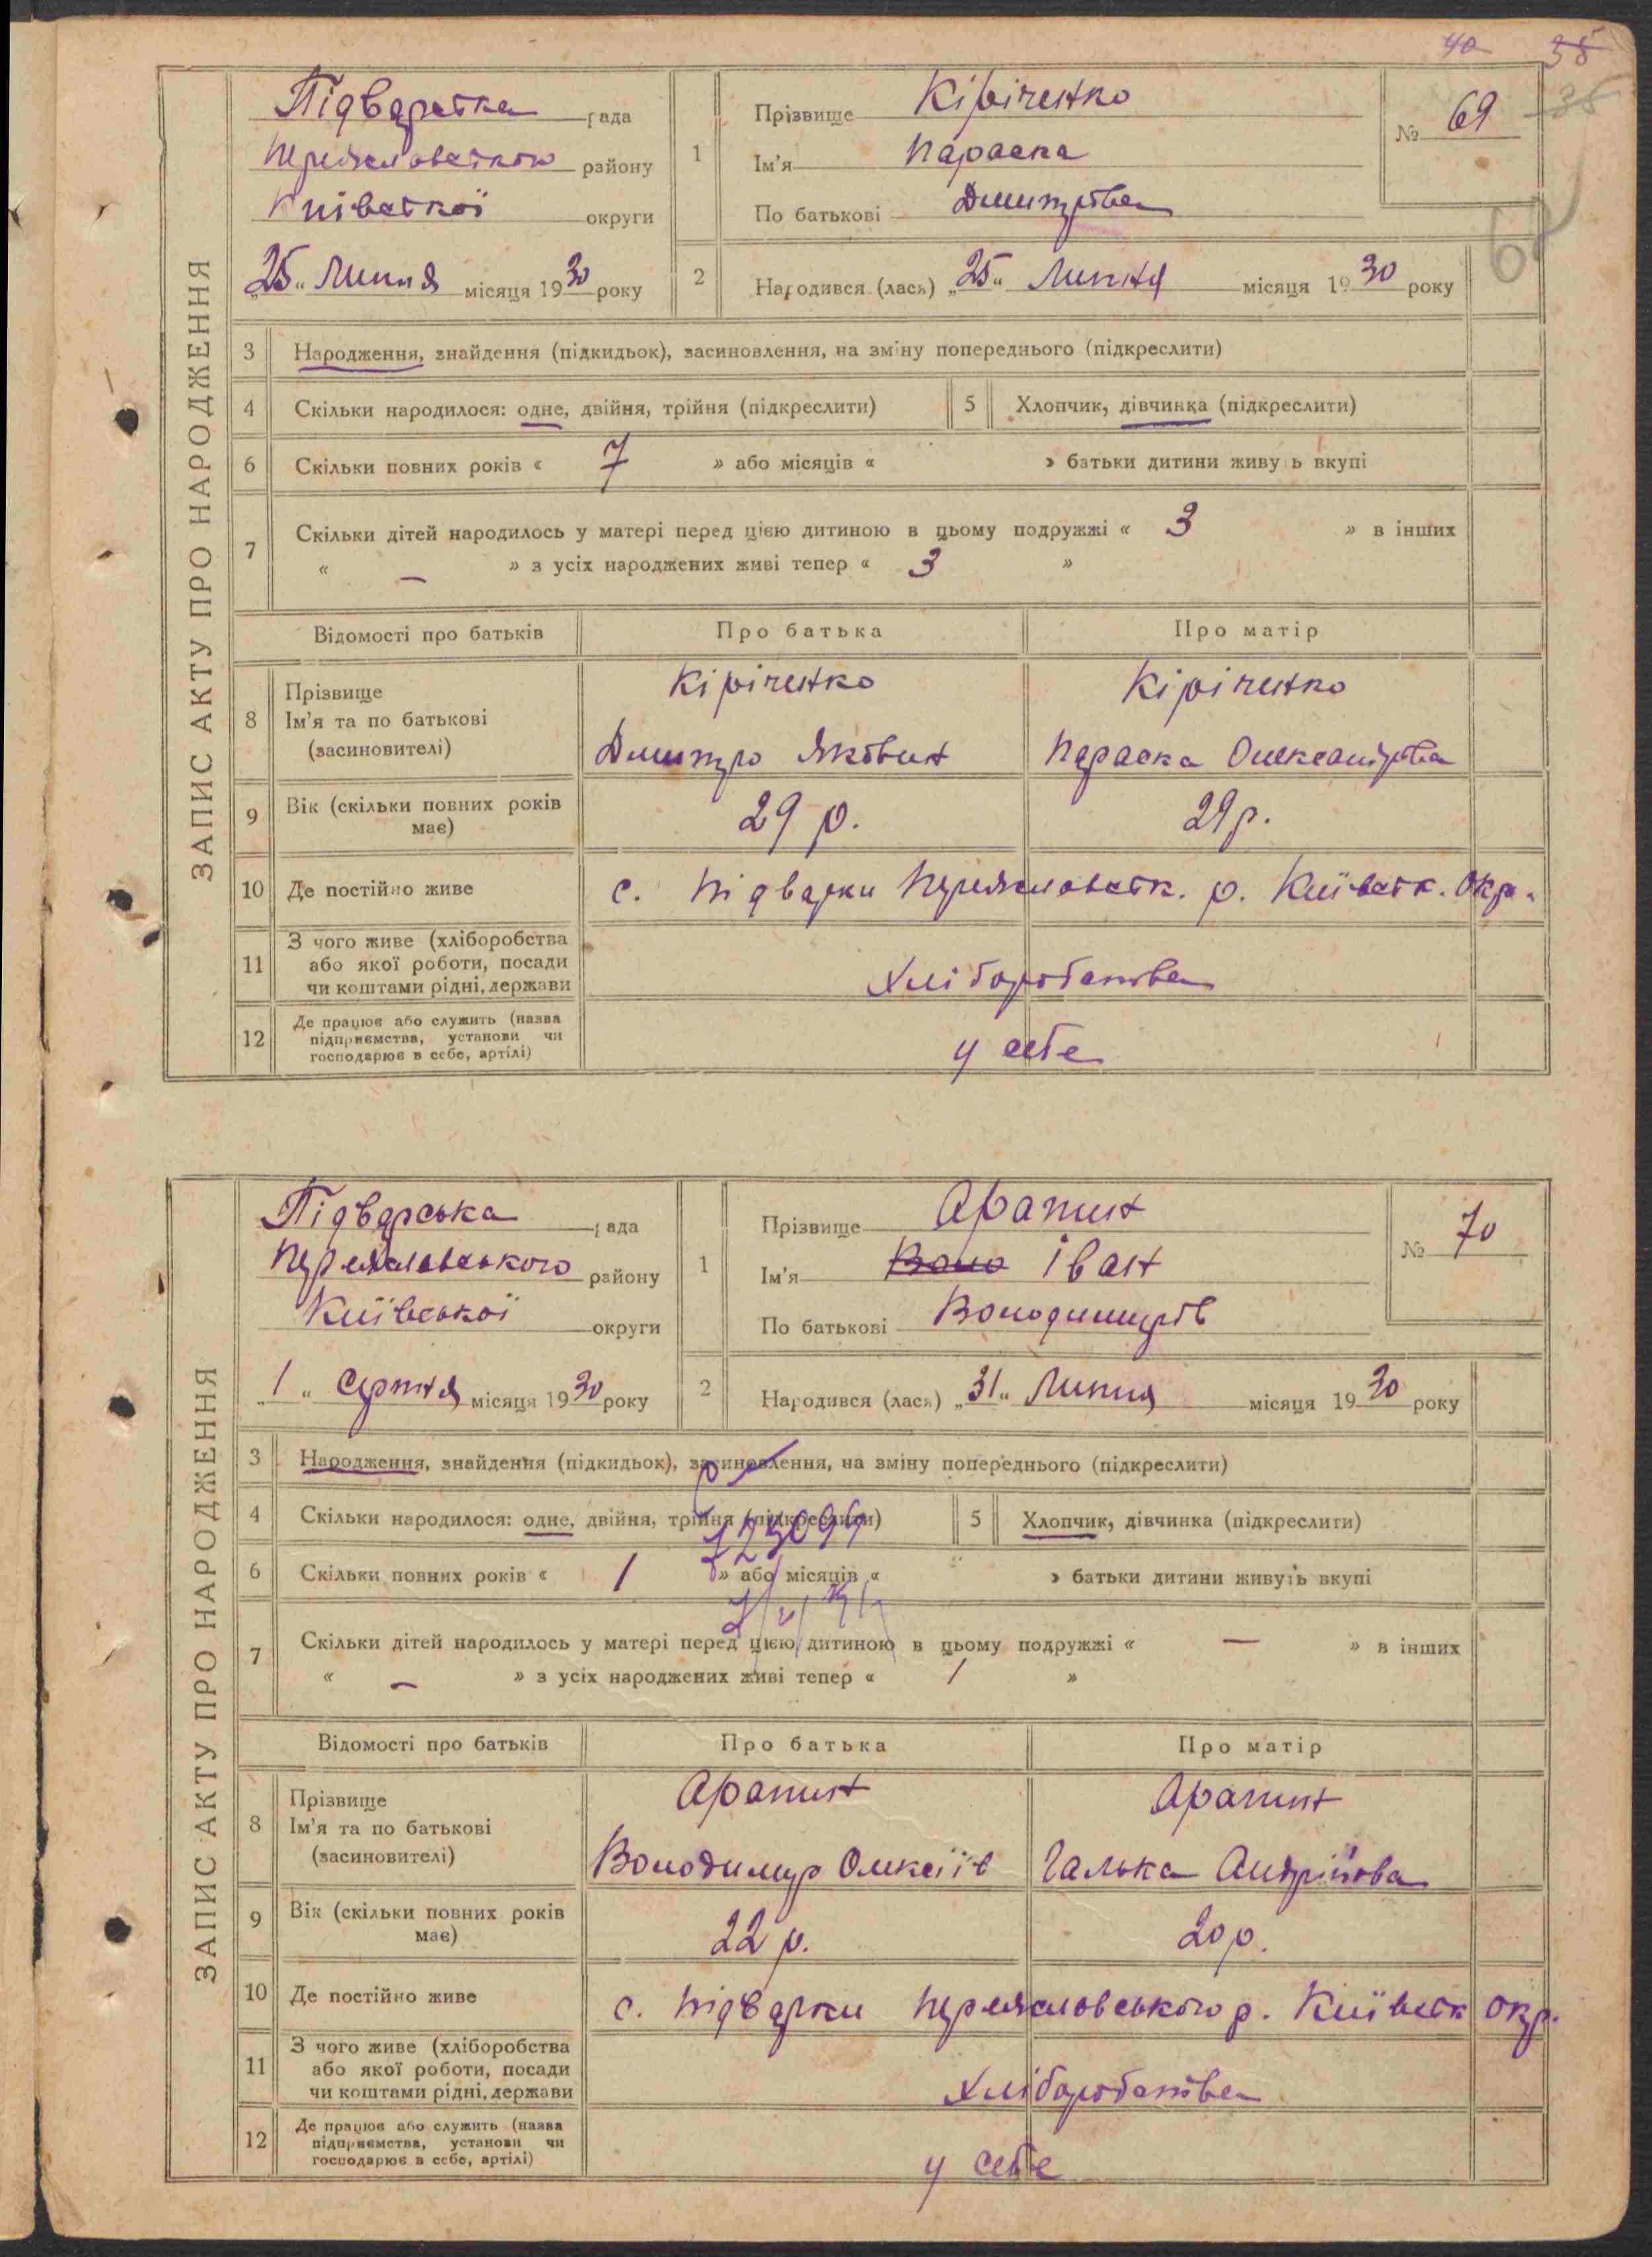 40 38
35
ЗАПИС АКТУ ПРО НАРОДЖЕННЯ
Підварська рада
Переяславського району
Київської округи
„25“ Липня місяця 1930 року
1
Прізвище Кіріченко
Ім'я Параска
По батькові Дмитрова
№ 69
2
Народився (лась) „25“ Липня місяця 1930 року
3 Народження, знайдення (підкидьок), засиновлення, на зміну попереднього (підкреслити)
4 Скільки народилося: одне, двійня, трійня (підкреслити) 5 Хлопчик, дівчинка (підкреслити)
6 Скільки повних років « 7 » або місяців « » батьки дитини живуть вкупі
7 Скільки дітей народилось у матері перед цією дитиною в цьому подружжі « 3 » в інших
« — » з усіх народжених живі тепер « 3 »
Відомості про батьків Про батька Про матір
8 Прізвище
Ім'я та по батькові
(засиновителі)
Кіріченко Кіріченко
Дмитро Яковин Параска Олександрова
9 Вік (скільки повних років
має)
29 р. 29 р.
10 Де постійно живе с. Підварки Переяславськ. р. Київськ. Окр.
11 З чого живе (хліборобства
або якої роботи, посади
чи коштами рідні, держави
Хліборобства
12 Де працює або служить (назва
підприємства, установи чи
господарює в себе, артілі)
у себе
ЗАПИС АКТУ ПРО НАРОДЖЕННЯ
Підварська рада
Переяславського району
Київської округи
„1“ Серпня місяця 1930 року
1
Прізвище Арапин
Ім'я Воло Іван
По батькові Володимирів
№ 70
2
Народився (лась) „31“ Липня місяця 1930 року
3 Народження, знайдення (підкидьок), засиновлення, на зміну попереднього (підкреслити)
4 Скільки народилося: одне, двійня, трійня (підкреслити) 5 Хлопчик, дівчинка (підкреслити)
6 Скільки повних років « 1 » або місяців « » батьки дитини живуть вкупі
7 Скільки дітей народилось у матері перед цією дитиною в цьому подружжі « — » в інших
« — » з усіх народжених живі тепер « 1 »
Відомості про батьків Про батька Про матір
8 Прізвище
Ім'я та по батькові
(засиновителі)
Арапин Арапин
Володимир Олексіїв Галька Андрійова
9 Вік (скільки повних років
має)
22 р. 20 р.
10 Де постійно живе с. Підварки Переяславського р. Київськ Окр.
11 З чого живе (хліборобства
або якої роботи, посади
чи коштами рідні, держави
Хліборобства
12 Де працює або служить (назва
підприємства, установи чи
господарює в себе, артілі)
у себе